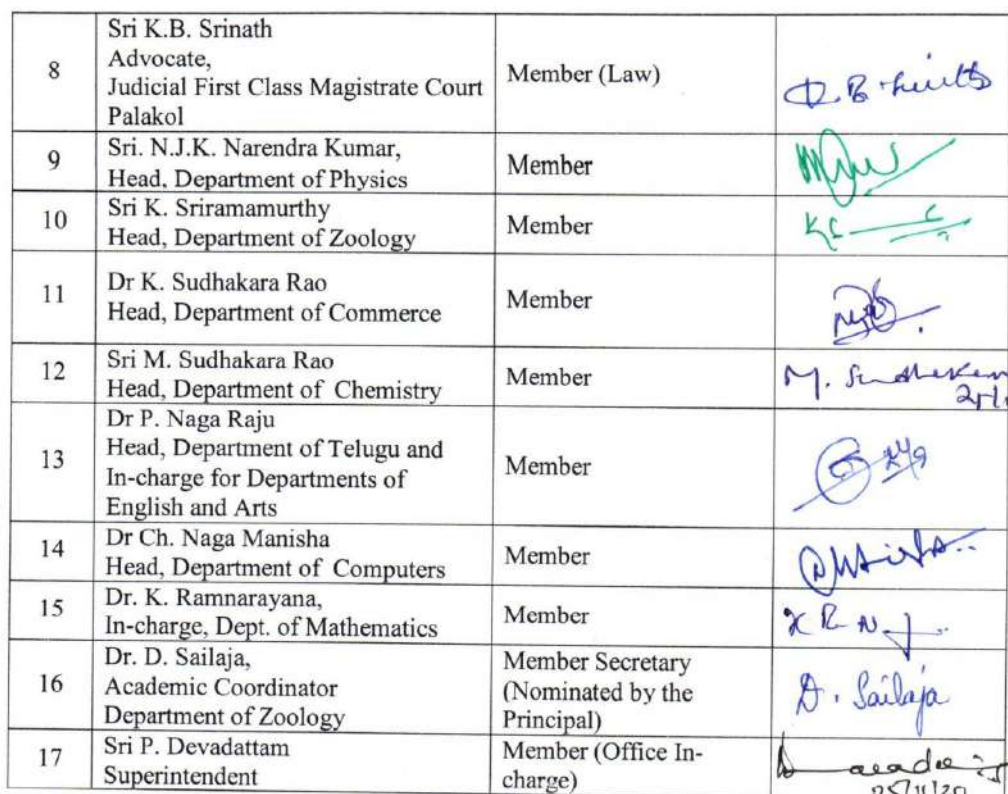 8
Sri K.B. Srinath
Advocate,
Judicial First Class Magistrate Court
Palakol
Member (Law)
9
Sri. N.J.K. Narendra Kumar,
Head, Department of Physics
Member
10
Sri K. Sriramamurthy
Head, Department of Zoology
Member
11
Dr K. Sudhakara Rao
Head, Department of Commerce
Member
12
Sri M. Sudhakara Rao
Head, Department of Chemistry
Member
M.
13
Dr P. Naga Raju
Head, Department of Telugu and
In-charge for Departments of
English and Arts
Member
14
Dr Ch. Naga Manisha
Head, Department of Computers
Member
15
Dr. K. Ramnarayana,
In-charge, Dept. of Mathematics
Member
16
Dr. D. Sailaja,
Academic Coordinator
Department of Zoology
Member Secretary
(Nominated by the
Principal)
D. Sailaja
17
Sri P. Devadattam
Superintendent
Member (Office In-
charge)